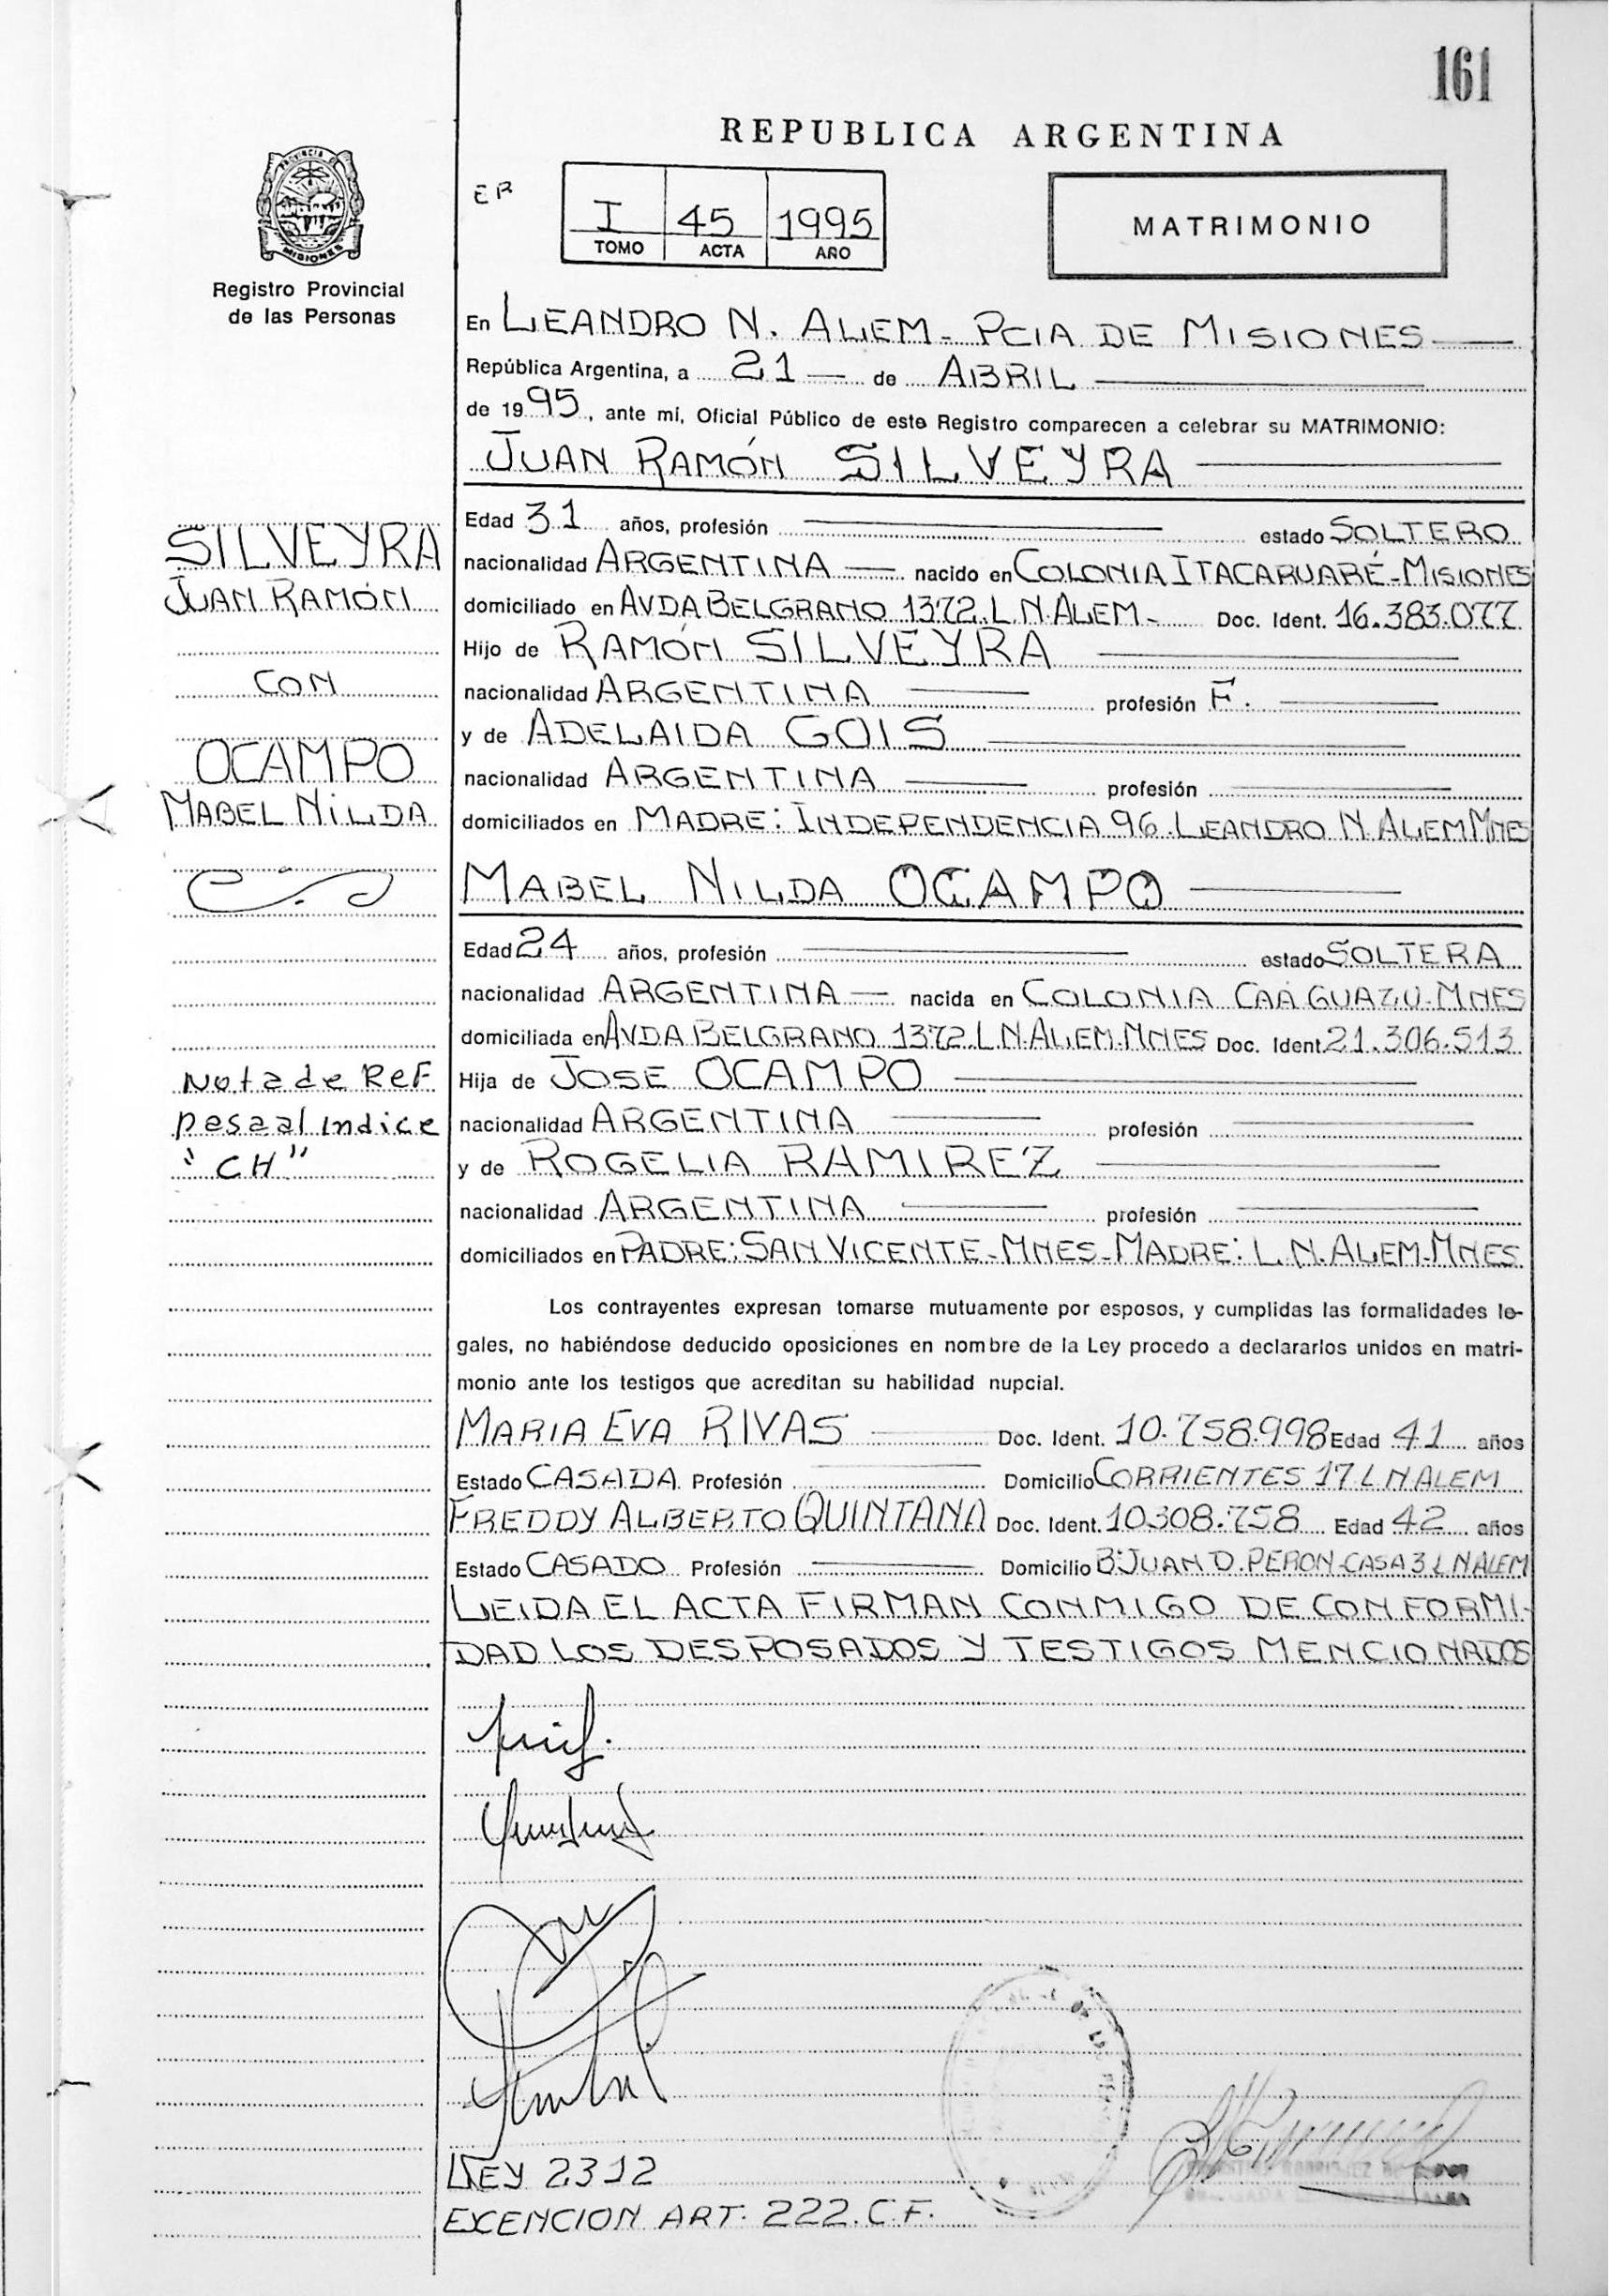 161
REPUBLICA ARGENTINA
ER
I 45 1995
TOMO ACTA AÑO
MATRIMONIO
PROVINCIA DE
MISIONES
Registro Provincial
de las Personas
En LEANDRO N. ALEM - PCIA DE MISIONES
República Argentina, a 21 de ABRIL
de 1995, ante mí, Oficial Público de este Registro comparecen a celebrar su MATRIMONIO:
JUAN RAMÓN SILVEYRA
SILVEYRA
JUAN RAMÓN
CON
OCAMPO
MABEL NILDA
Edad 31 años, profesión estado SOLTERO
nacionalidad ARGENTINA nacido en COLONIA ITACARUARÉ-MISIONES
domiciliado en AVDA BELGRANO 1372. L.N. ALEM - Doc. Ident. 16.383.077
Hijo de RAMÓN SILVEYRA
nacionalidad ARGENTINA profesión F.
y de ADELAIDA GOIS
nacionalidad ARGENTINA profesión
domiciliados en MADRE: INDEPENDENCIA 96. LEANDRO N. ALEM MNES
MABEL NILDA OCAMPO
Edad 24 años, profesión estado SOLTERA
nacionalidad ARGENTINA nacida en COLONIA CAÁ GUAZÚ-MNES
domiciliada en AVDA BELGRANO 1372 L N. ALEM-MNES Doc. Ident 21.306.513
Hija de JOSE OCAMPO
nacionalidad ARGENTINA profesión
y de ROGELIA RAMIREZ
nacionalidad ARGENTINA profesión
domiciliados en PADRE: SAN VICENTE-MNES-MADRE: L.N. ALEM-MNES
Nota de Ref
pasa al indice
"CH"
Los contrayentes expresan tomarse mutuamente por esposos, y cumplidas las formalidades le-
gales, no habiéndose deducido oposiciones en nombre de la Ley procedo a declararlos unidos en matri-
monio ante los testigos que acreditan su habilidad nupcial.
MARIA EVA RIVAS Doc. Ident. 10.758.998 Edad 41 años
Estado CASADA Profesión Domicilio CORRIENTES 17 L N ALEM
FREDDY ALBERTO QUINTANA Doc. Ident. 10308.758 Edad 42 años
Estado CASADO Profesión Domicilio B: JUAN D. PERON-CASA 3 L N ALEM
LEIDA EL ACTA FIRMAN CONMIGO DE CONFORMI-
DAD LOS DESPOSADOS Y TESTIGOS MENCIONADOS
LEY 2312
EXENCION ART. 222. C.F.